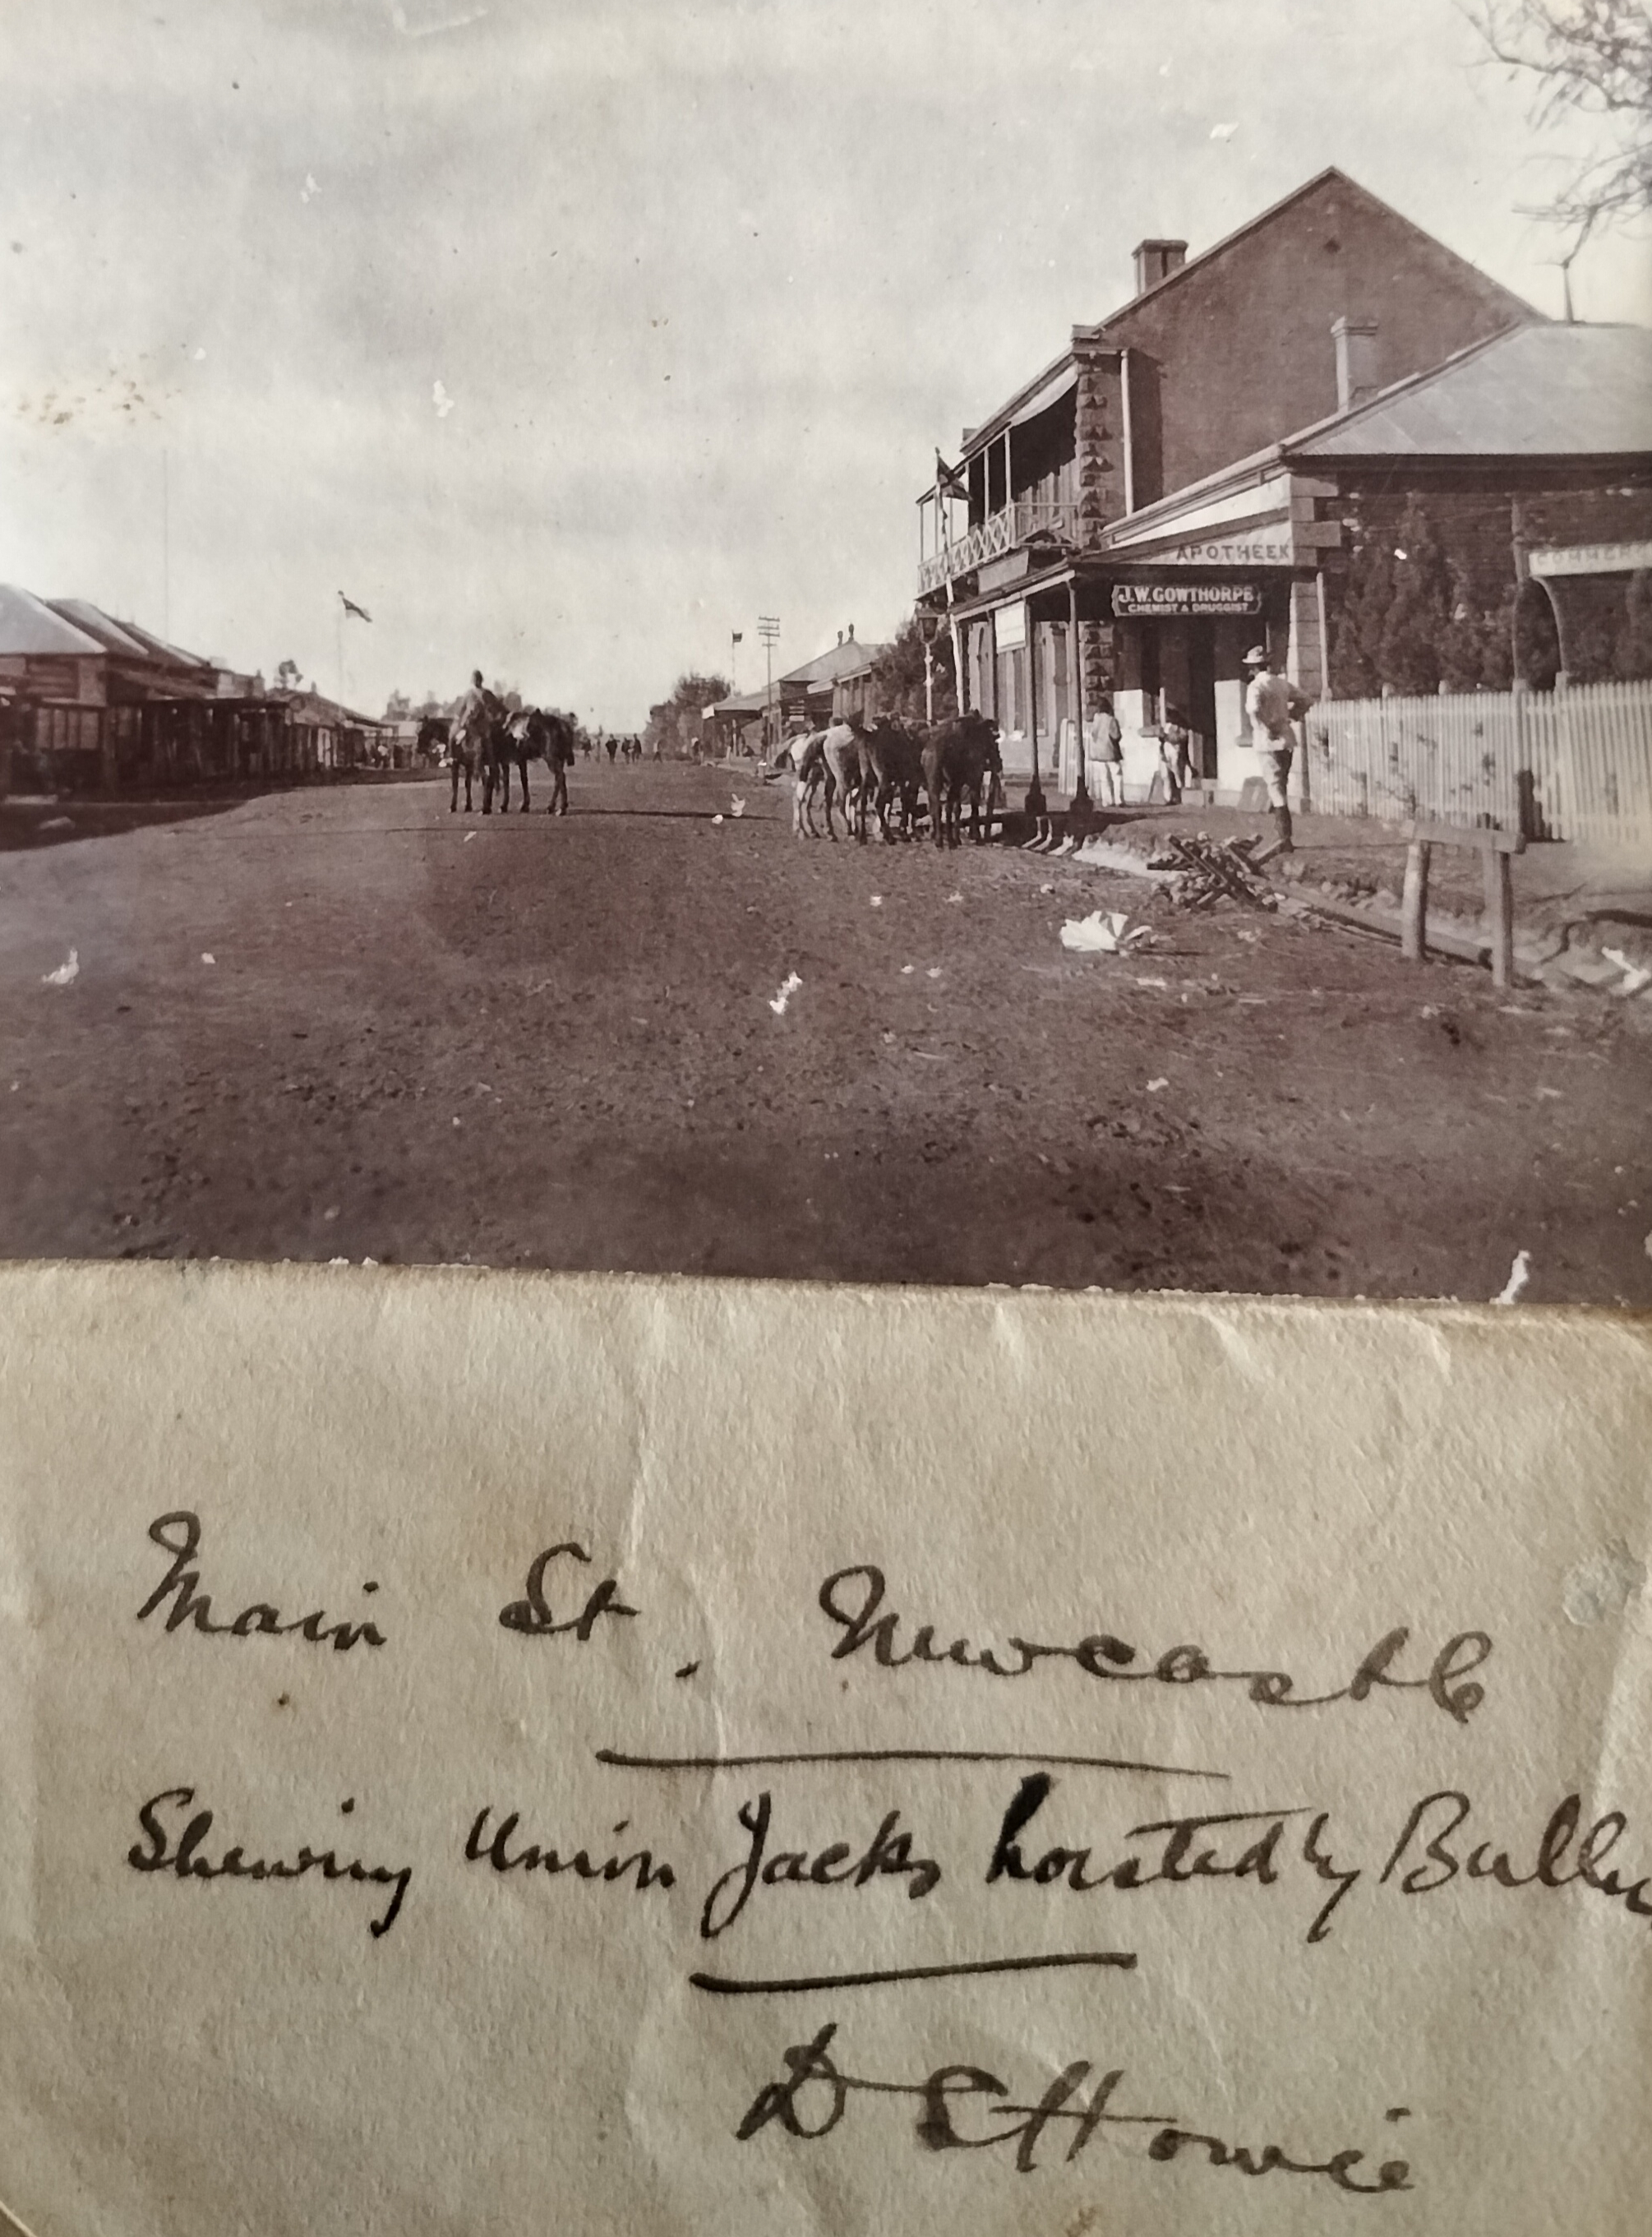 APOTHEEK
J.W. GOWTHORPE
CHEMIST & DRUGGIST
Main St. Newcastle
Shewing Union Jacks hoisted by Buller
D S Howie